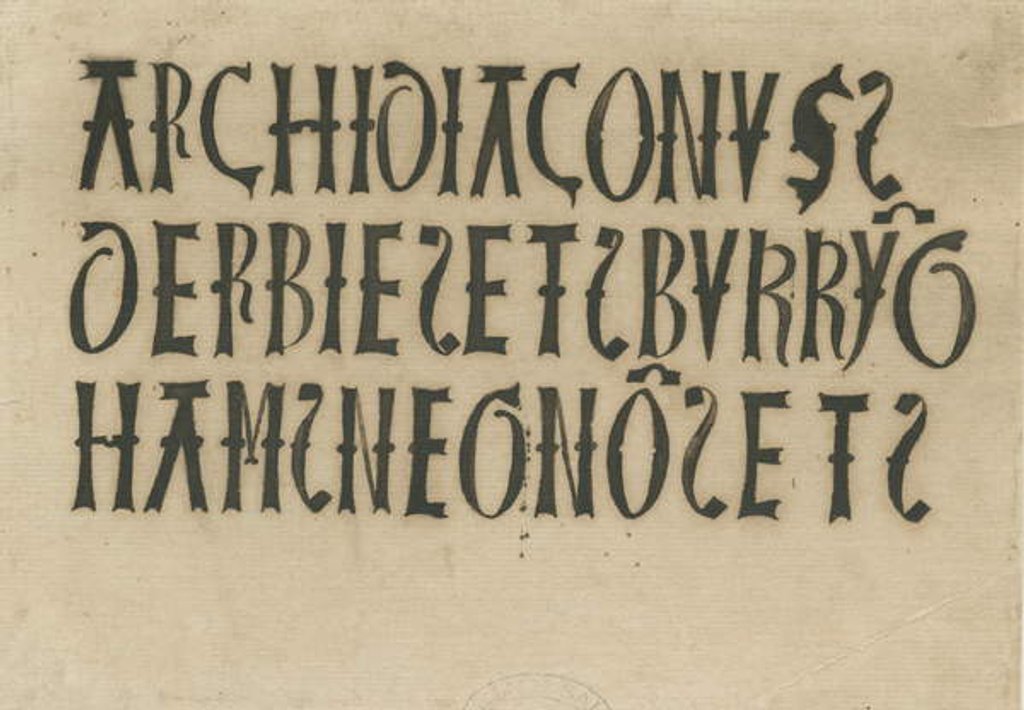 ARCHIDIACONVSS
DERBIESETSBVRRȲG
HAMSNEGNŌSETS